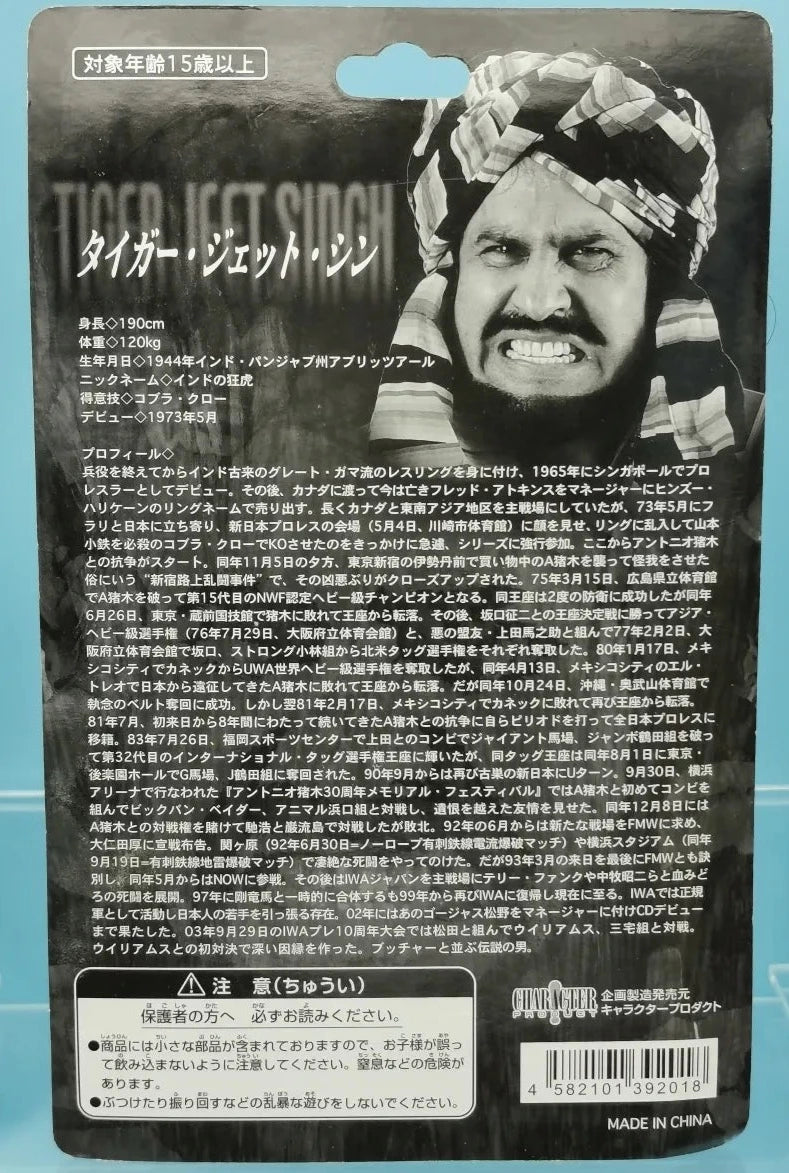 対象年齢15歳以上
TIGER JEET SINGH
タイガー・ジェット・シン
身長◇190cm
体重◇120kg
生年月日◇1944年インド・パンジャブ州アブリッツアール
ニックネーム◇インドの狂虎
得意技◇コブラ・クロー
デビュー◇1973年5月
プロフィール◇
兵役を終えてからインド古来のグレート・ガマ流のレスリングを身に付け、1965年にシンガポールでプロ
レスラーとしてデビュー。その後、カナダに渡って今は亡きフレッド・アトキンスをマネージャーにヒンズー・
ハリケーンのリングネームで売り出す。長くカナダと東南アジア地区を主戦場にしていたが、73年5月にフ
ラリと日本に立ち寄り、新日本プロレスの会場（5月4日、川崎市体育館）に顔を見せ、リングに乱入して山本
小鉄を必殺のコブラ・クローでKOさせたのをきっかけに急遽、シリーズに強行参加。ここからアントニオ猪木
との抗争がスタート。同年11月5日の夕方、東京新宿の伊勢丹前で買い物中のA猪木を襲って怪我をさせた
俗にいう“新宿路上乱闘事件”で、その凶悪ぶりがクローズアップされた。75年3月15日、広島県立体育館
でA猪木を破って第15代目のNWF認定ヘビー級チャンピオンとなる。同王座は2度の防衛に成功したが同年
6月26日、東京・蔵前国技館で猪木に敗れて王座から転落。その後、坂口征二との王座決定戦に勝ってアジア・
ヘビー級選手権（76年7月29日、大阪府立体育会館）と、悪の盟友・上田馬之助と組んで77年2月2日、大
阪府立体育会館で坂口、ストロング小林組から北米タッグ選手権をそれぞれ奪取した。80年1月17日、メキ
シコシティでカネックからUWA世界ヘビー級選手権を奪取したが、同年4月13日、メキシコシティのエル・
トレオで日本から遠征してきたA猪木に敗れて王座から転落。だが同年10月24日、沖縄・奥武山体育館で
執念のベルト奪回に成功。しかし翌81年2月17日、メキシコシティでカネックに敗れて再び王座から転落。
81年7月、初来日から8年間にわたって続いてきたA猪木との抗争に自らピリオドを打って全日本プロレスに
移籍。83年7月26日、福岡スポーツセンターで上田とのコンビでジャイアント馬場、ジャンボ鶴田組を破っ
て第32代目のインターナショナル・タッグ選手権王座に輝いたが、同タッグ王座は同年8月1日に東京・
後楽園ホールでG馬場、J鶴田組に奪回された。90年9月からは再び古巣の新日本にUターン。9月30日、横浜
アリーナで行なわれた『アントニオ猪木30周年メモリアル・フェスティバル』ではA猪木と初めてコンビを
組んでビックバン・ベイダー、アニマル浜口組と対戦し、遺恨を越えた友情を見せた。同年12月8日には
A猪木との対戦権を賭けて馳浩と巌流島で対戦したが敗北。92年の6月からは新たな戦場をFMWに求め、
大仁田厚に宣戦布告。関ヶ原（92年6月30日=ノーロープ有刺鉄線電流爆破マッチ）や横浜スタジアム（同年
9月19日=有刺鉄線地雷爆破マッチ）で凄絶な死闘をやってのけた。だが93年3月の来日を最後にFMWとも訣
別し、同年5月からはNOWに参戦。その後はIWAジャパンを主戦場にテリー・ファンクや中牧昭二らと血みど
ろの死闘を展開。97年に剛竜馬と一時的に合体するも99年から再びIWAに復帰し現在に至る。IWAでは正規
軍として活動し日本人の若手を引っ張る存在。02年にはあのゴージャス松野をマネージャーに付けCDデビュー
まで果たした。03年9月29日のIWAプレ10周年大会では松田と組んでウイリアムス、三宅組と対戦。
ウイリアムスとの初対決で深い因縁を作った。ブッチャーと並ぶ伝説の男。
⚠注　意(ちゅうい)
保護者の方へ　必ずお読みください。
●商品には小さな部品が含まれておりますので、お子様が誤っ
て飲み込まないように注意してください。窒息などの危険が
あります。
●ぶつけたり振り回すなどの乱暴な遊びをしないでください。
CHARACTER PRODUCT
企画製造発売元
キャラクタープロダクト
4 582101 392018
MADE IN CHINA